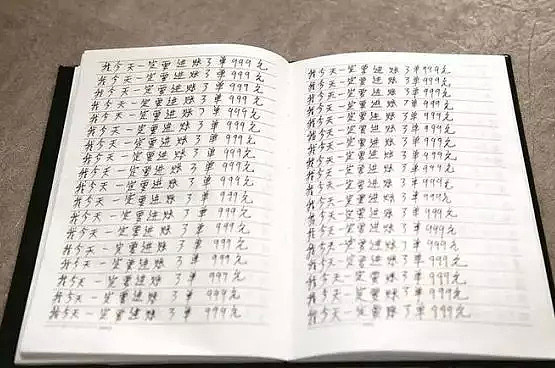 我今天一定要进账3单999元
我今天一定要进账3单999元
我今天一定要进账3单999元
我今天一定要进账3单999元
我今天一定要进账3单999元
我今天一定要进账3单999元
我今天一定要进账3单999元
我今天一定要进账3单999元
我今天一定要进账3单999元
我今天一定要进账3单999元
我今天一定要进账3单999元
我今天一定要进账3单999元
我今天一定要进账3单999元
我今天一定要进账3单999元
我今天一定要进账3单999元
我今天一定要进账3单999元
我今天一定要进账3单999元
我今天一定要进账3单999元
我今天一定要进账3单999元
我今天一定要进账3单999元
我今天一定要进账3单999元
我今天一定要进账3单999元
我今天一定要进账3单999元
我今天一定要进账3单999元
我今天一定要进账3单999元
我今天一定要进账3单999元
我今天一定要进账3单999元
我今天一定要进账3单999元
我今天一定要进账3单999元
我今天一定要进账3单999元
我今天一定要进账3单999元
我今天一定要进账3单999元
我今天一定要进账3单999元
我今天一定要进账3单999元
我今天一定要进账3单999元
我今天一定要进账3单999元